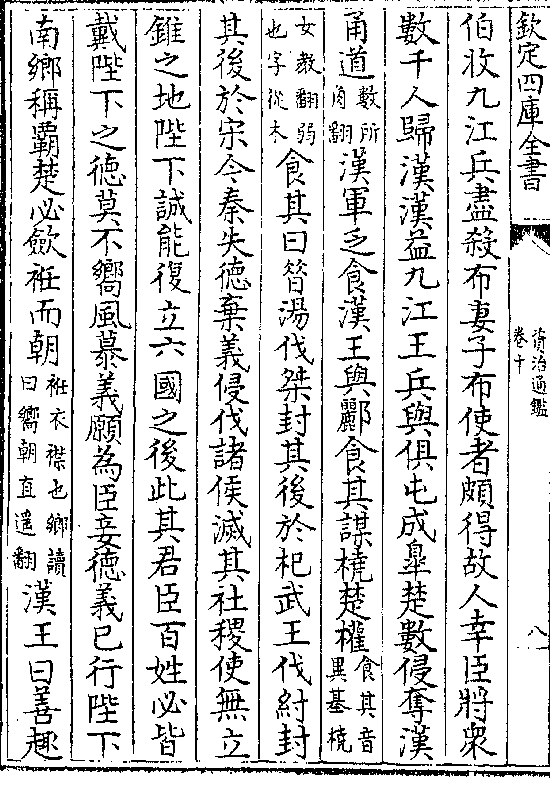 欽定四庫全書
資治通鑑
卷十
八
伯收九江兵盡殺布妻子布使者頗得故人幸臣將衆
數千人歸漢漢益九江王兵與俱屯成臯楚數侵奪漢
甬道數所角翻漢軍乏食漢王與酈食其謀橈楚權食其音異基橈
女教翻弱也字從木食其曰昔湯伐桀封其後於杞武王伐紂封
其後於宋今秦失德棄義侵伐諸侯滅其社稷使無立
錐之地陛下誠能復立六國之後此其君臣百姓必皆
戴陛下之德莫不嚮風慕義願為臣妾德義已行陛下
南鄉稱霸楚必歛袵而朝袵衣襟也鄉讀曰嚮朝直遥翻漢王曰善趣